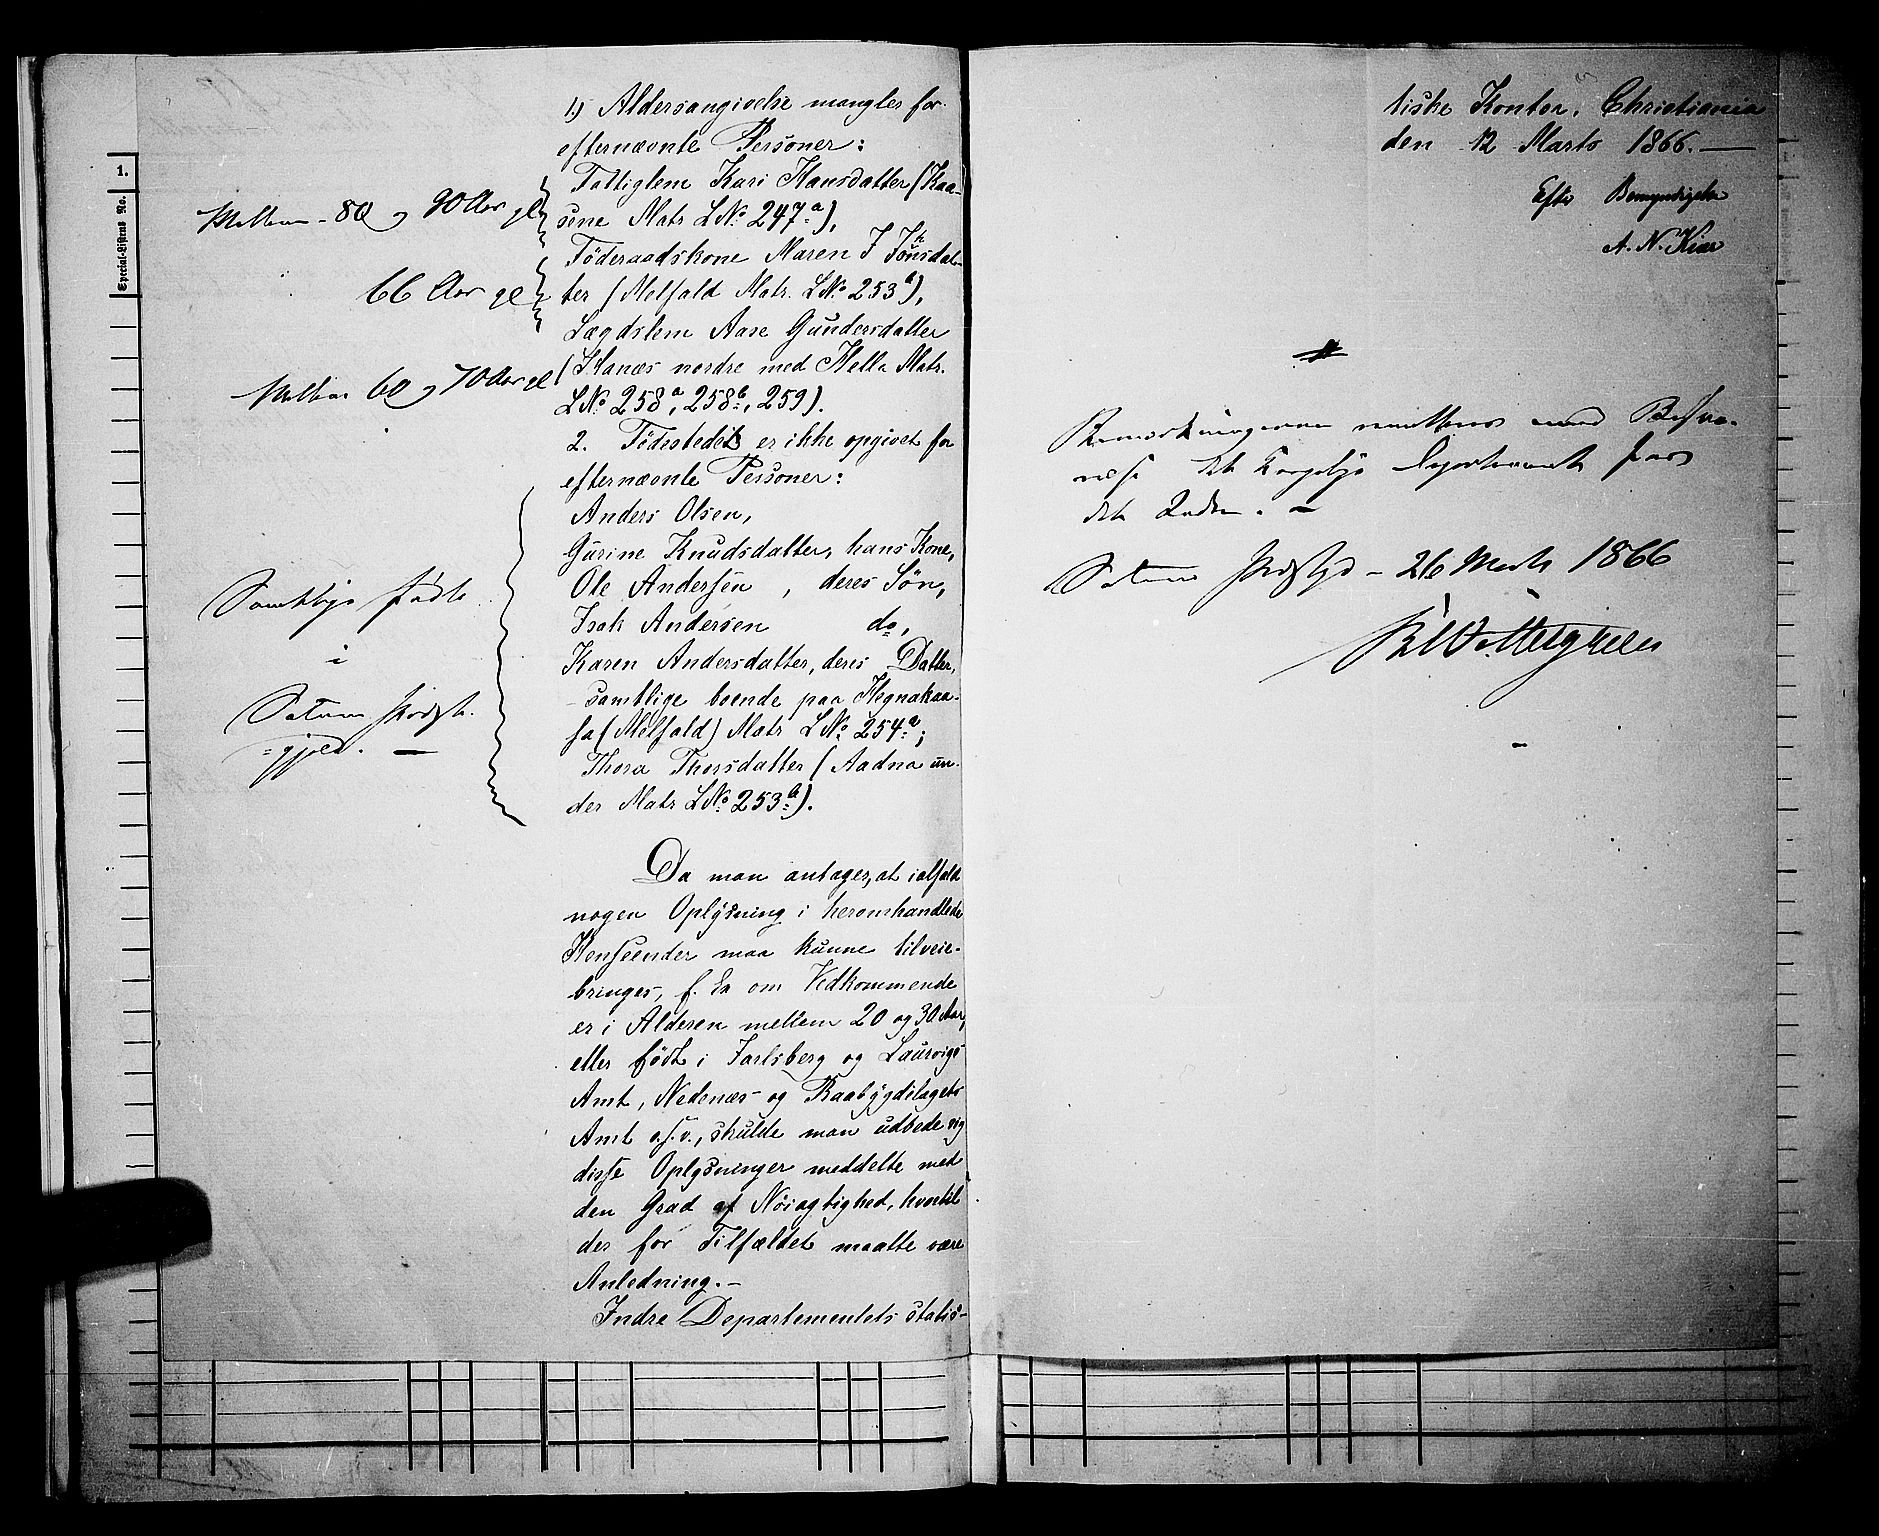 1.
Special-Listens No.
1) Aldersangivelse mangler for
efternævnte Personer:
Fattiglem Kari Hansdatter (Kaa-
sene Matr LNo 247a),
Mellem 80 og 90 Aar gl
Föderaadskone Maren J Jonsdat-
ter (Melfald Matr. LNo 253b),
66 Aar gl
Lægdslem Aase Gundersdatter
(Kanæs nordre med Hella Matr.
LNo 258a, 258b, 259).
Mellem 60 og 70 Aar gl
2. Födestedet er ikke opgivet for
efternævnte Personer:
Anders Olsen,
Gurine Knudsdatter, hans Kone,
Ole Andersen, deres Sön,
Isak Andersen do,
Karen Andersdatter, deres Datter,
- samtlige boende paa Hegnakaa-
sa (Melfald) Matr LNo 254a;
Thora Thorsdatter (Aadna un-
der Matr LNo 253b).
Samtlige fødte
i
Præste-
=gjeld. —
Da man antager, at ialfald
nogen Oplysning i heromhandlede
Henseender maa kunne tilveie-
bringes, f. Ex om Vedkommende
er i Alderen mellem 20 og 30 Aar,
eller födt i Jarlsberg og Laurvigs
Amt, Nedenæs- og Raabygdelagets
Amt o.s.v., skulde man udbede sig
disse Oplysninger meddelte med
den Grad af Nöiagtighed, hvortil
der for Tilfældet maatte være
Anledning.-
Indre Departementets statis-
tiske Kontor, Christiania
den 12 Marts 1866. —
Efter Bemyndigelse
A. N. Kiær
Bemærkningerne med Besva-
relse det Kongelige Departement for
det Indre. —
26 Marts 1866